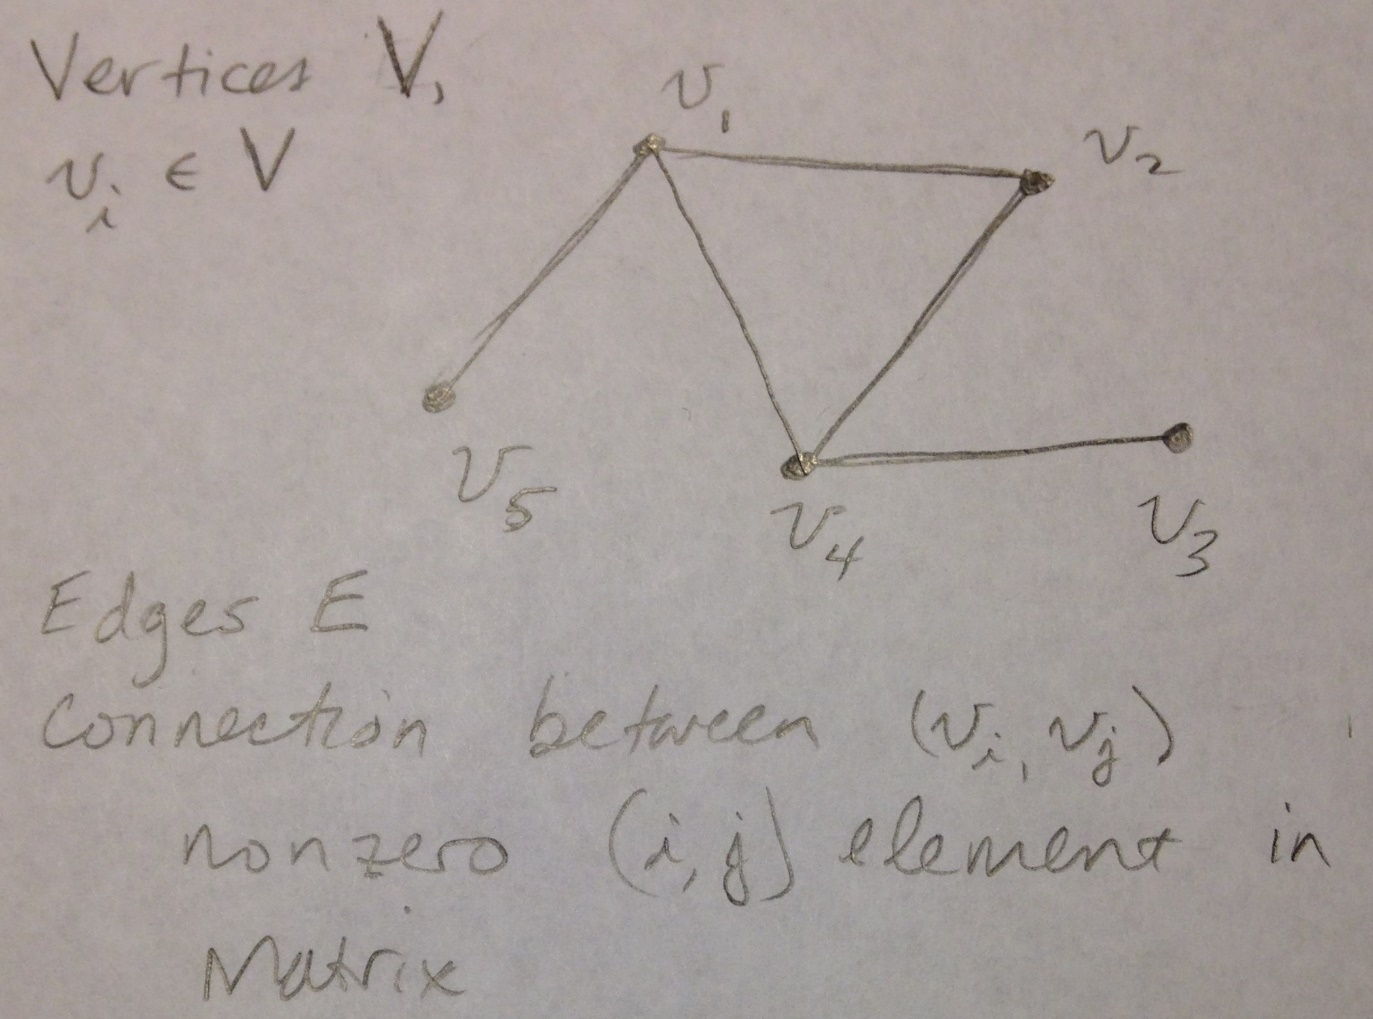 Vertices V,
v_i ∈ V
v_1
v_2
v_5
v_4
v_3
Edges E
Connection between (v_i, v_j)
nonzero (i,j) element in
Matrix